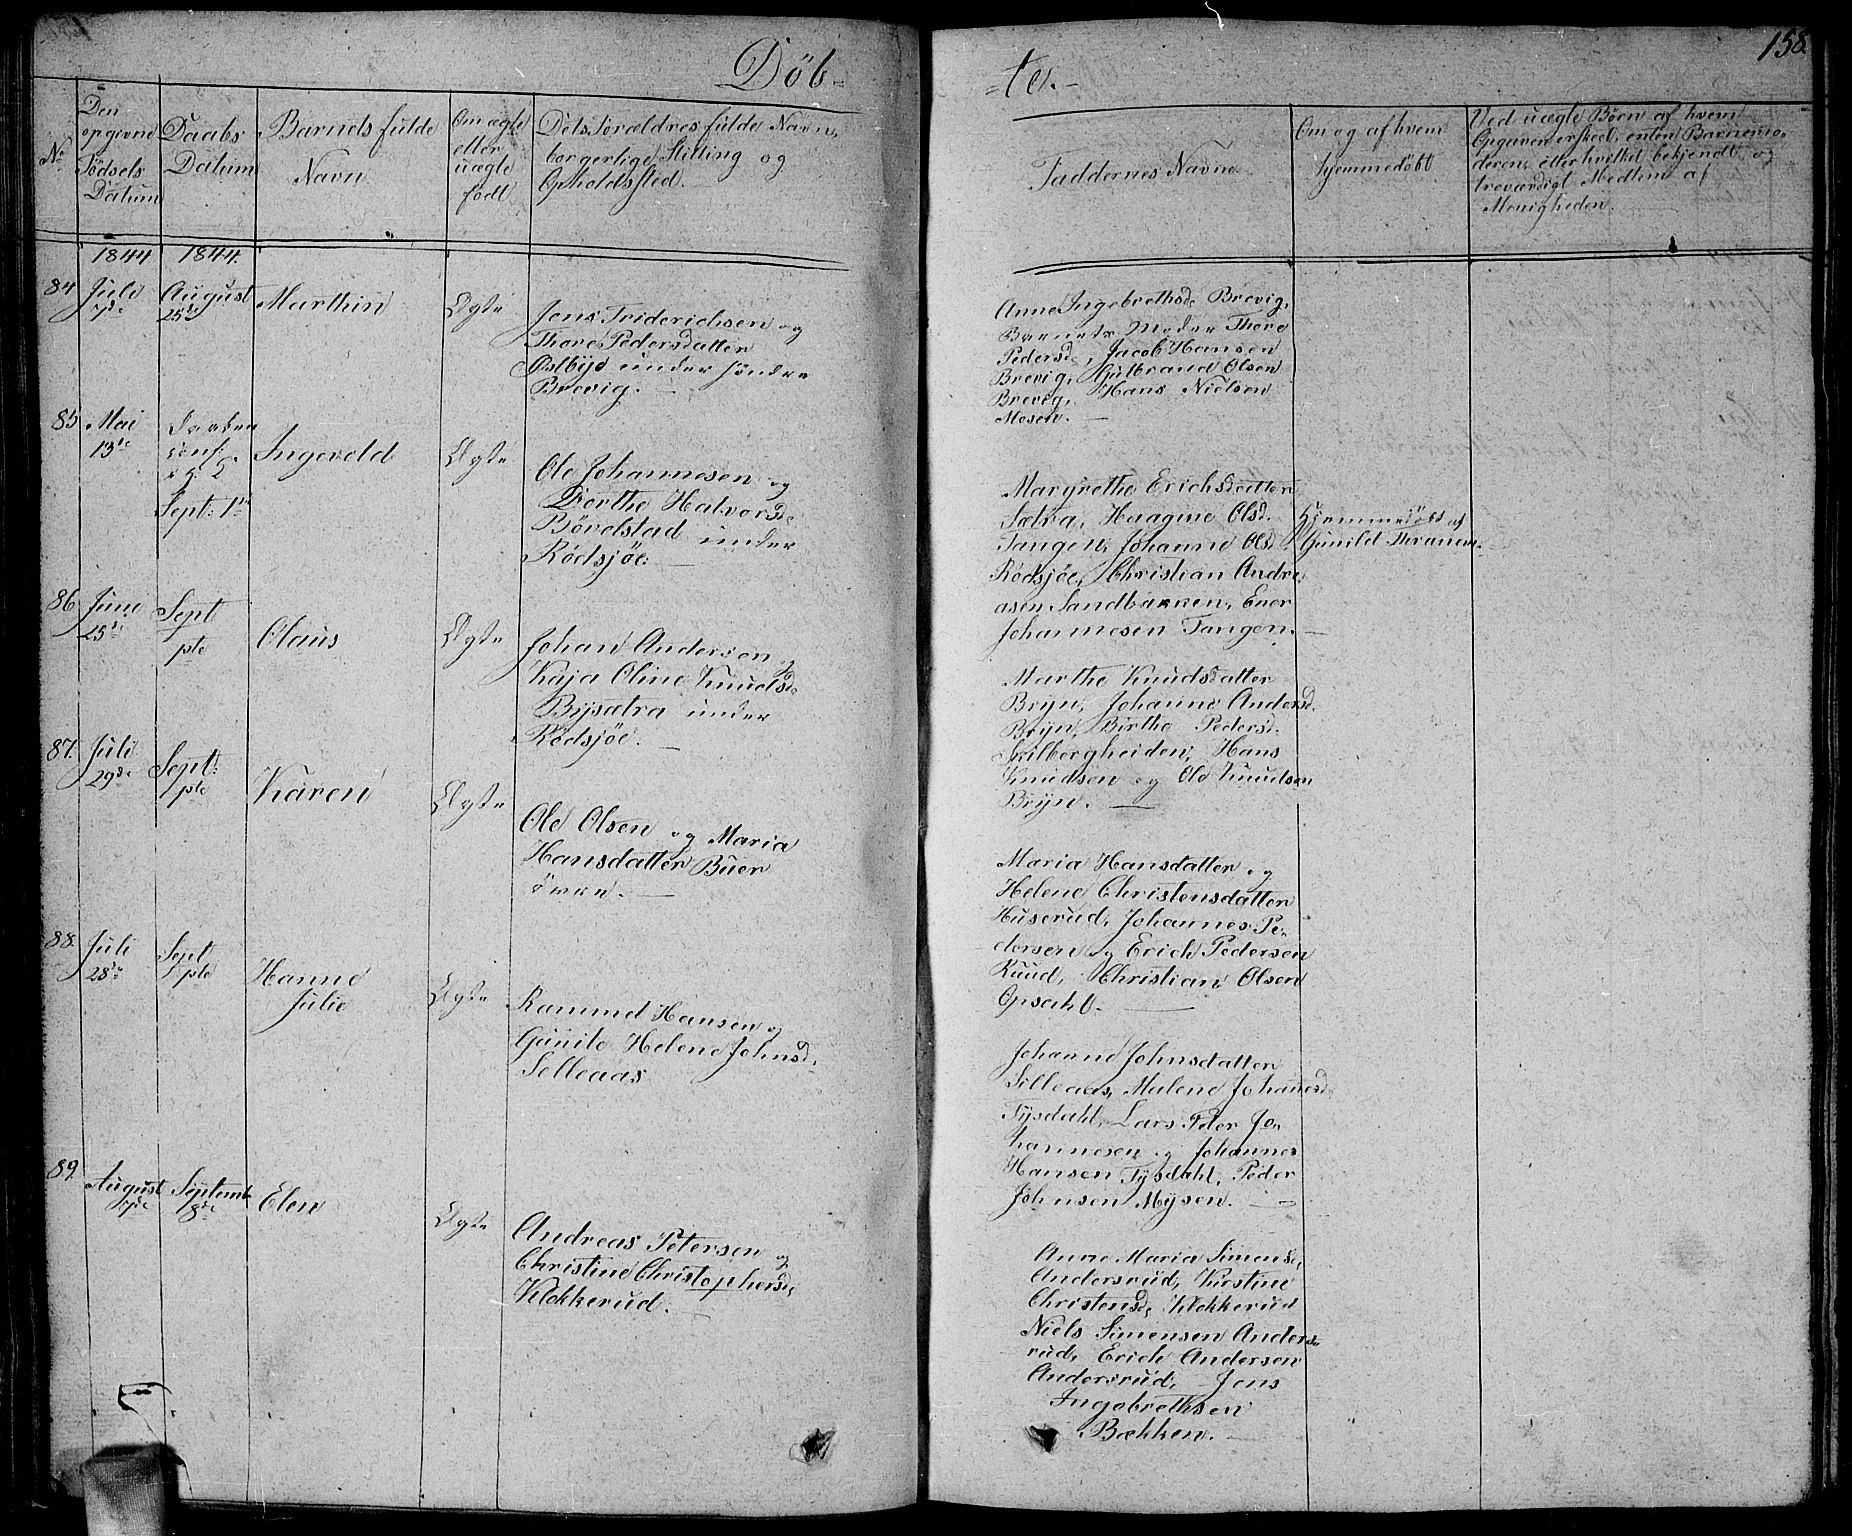 Døb-
-te.-
158
No
Den opgivne Fødsels Datum
Daabs Datum
Barnets fulde Navn
Om ægte eller uægte født
Dets Forældres fulde Navn, borgerlige Stilling og Opholdssted.
Faddernes Navne
Om og af hvem hjemmedøbt
Ved uægte Børn af hvem Opgaven er skeed, enten Barnemoderen eller hvilket bekjendt og troværdigt Medlem af Menigheden.
1844 1844.
84 Juli 7de
August 25de
Marthin
Ægte
Jens Friderichsen og
Thore Pedersdatter
Østbye under søndre
Brevig.
Anne Ingebrethsd. Brevig,
Barnets Moder Thore
Pedersd., Jacob Hansen
Brevig, Gulbrand Olsen
Brevig, Hans Nielsen
Mosen.
85 Mai 13de
Daaben
conf:
Sept: 1ste
Ingevold
Ægte
Ole Johannesen og
Dorthe Halvorsd.
Bøvelstad under
Rødsjøe.
Margrethe Erichsdatter
Sætra, Haagine Olsd.
Tangen, Johanne Olsd
Rødsjøe, Christian Andre
asen Sandbakken, Ener
Johannesen Tangen.
Hjemmedøbt af
Gunild Thranem.
86 Juni 25de
Sept 1ste
Claus
Ægte
Johan Andersen og
Kaja Oline Knudsd.
Bysætra under
Rødsjøe.
Marthe Knudsdatter
Bryn, Johanne Andersd.
Bryn, Birthe Pedersd.
Spilbergheiden, Hans
Knudsen og Ole Knudsen
Bryn.
87. Juli 29de
Sept: 1ste
Karen
Ægte
Ole Olsen og Maria
Hansdatter Buer
Maria Hansdatter og
Helene Christensdatter
Huserud, Johannes Pe-
dersen og Erich Pedersen
Ruud, Christian Olsen
Opsahl.
88. Juli 28de
Sept 1ste
Hanne
Julie
Ægte
Rammel Hansen og
Gunile Helene Johnsd.
Selleaas
Johanne Johnsdatter
Silleaas, Malene Johannesd.
Tysdahl, Lars Peter Jo-
hannesen og Johannes
Hansen Tysdahl, Peder
Johnsen Mysen.
89. August 7de
Septemb. 8de
Elen
Ægte
Andreas Petersen og
Christine Christophersd.
Klokkerud.
Anne Maria Simensd.
Andersrud, Kirstine
Christensd. Klokkerud
Niels Simensen Anders-
rud, Erich Andersen
Andersrud, Jens
Ingebrethsen
Bækken.